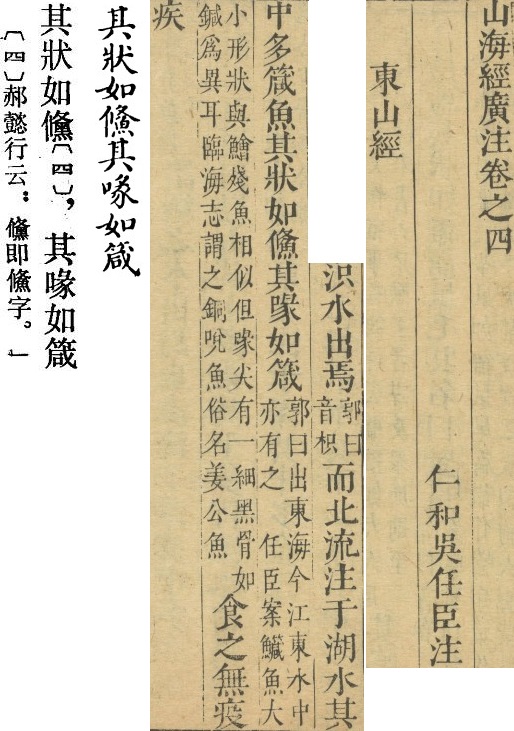 山海經廣注卷之四
仁和吳任臣注
東山經
水出焉郭曰音枳而北流注于湖水其
中多箴魚其狀如儵其喙如箴郭曰出東海今江東水中亦有之 任臣案鱵魚大
小形狀與鱠殘魚相似但喙尖有一細黑骨如鍼爲異耳臨海志謂之銅哾魚俗名姜公魚食之無疫
疾
其狀如儵其喙如箴
其狀如儵〔四〕，其喙如箴
〔四〕郝懿行云：儵即儵字。」